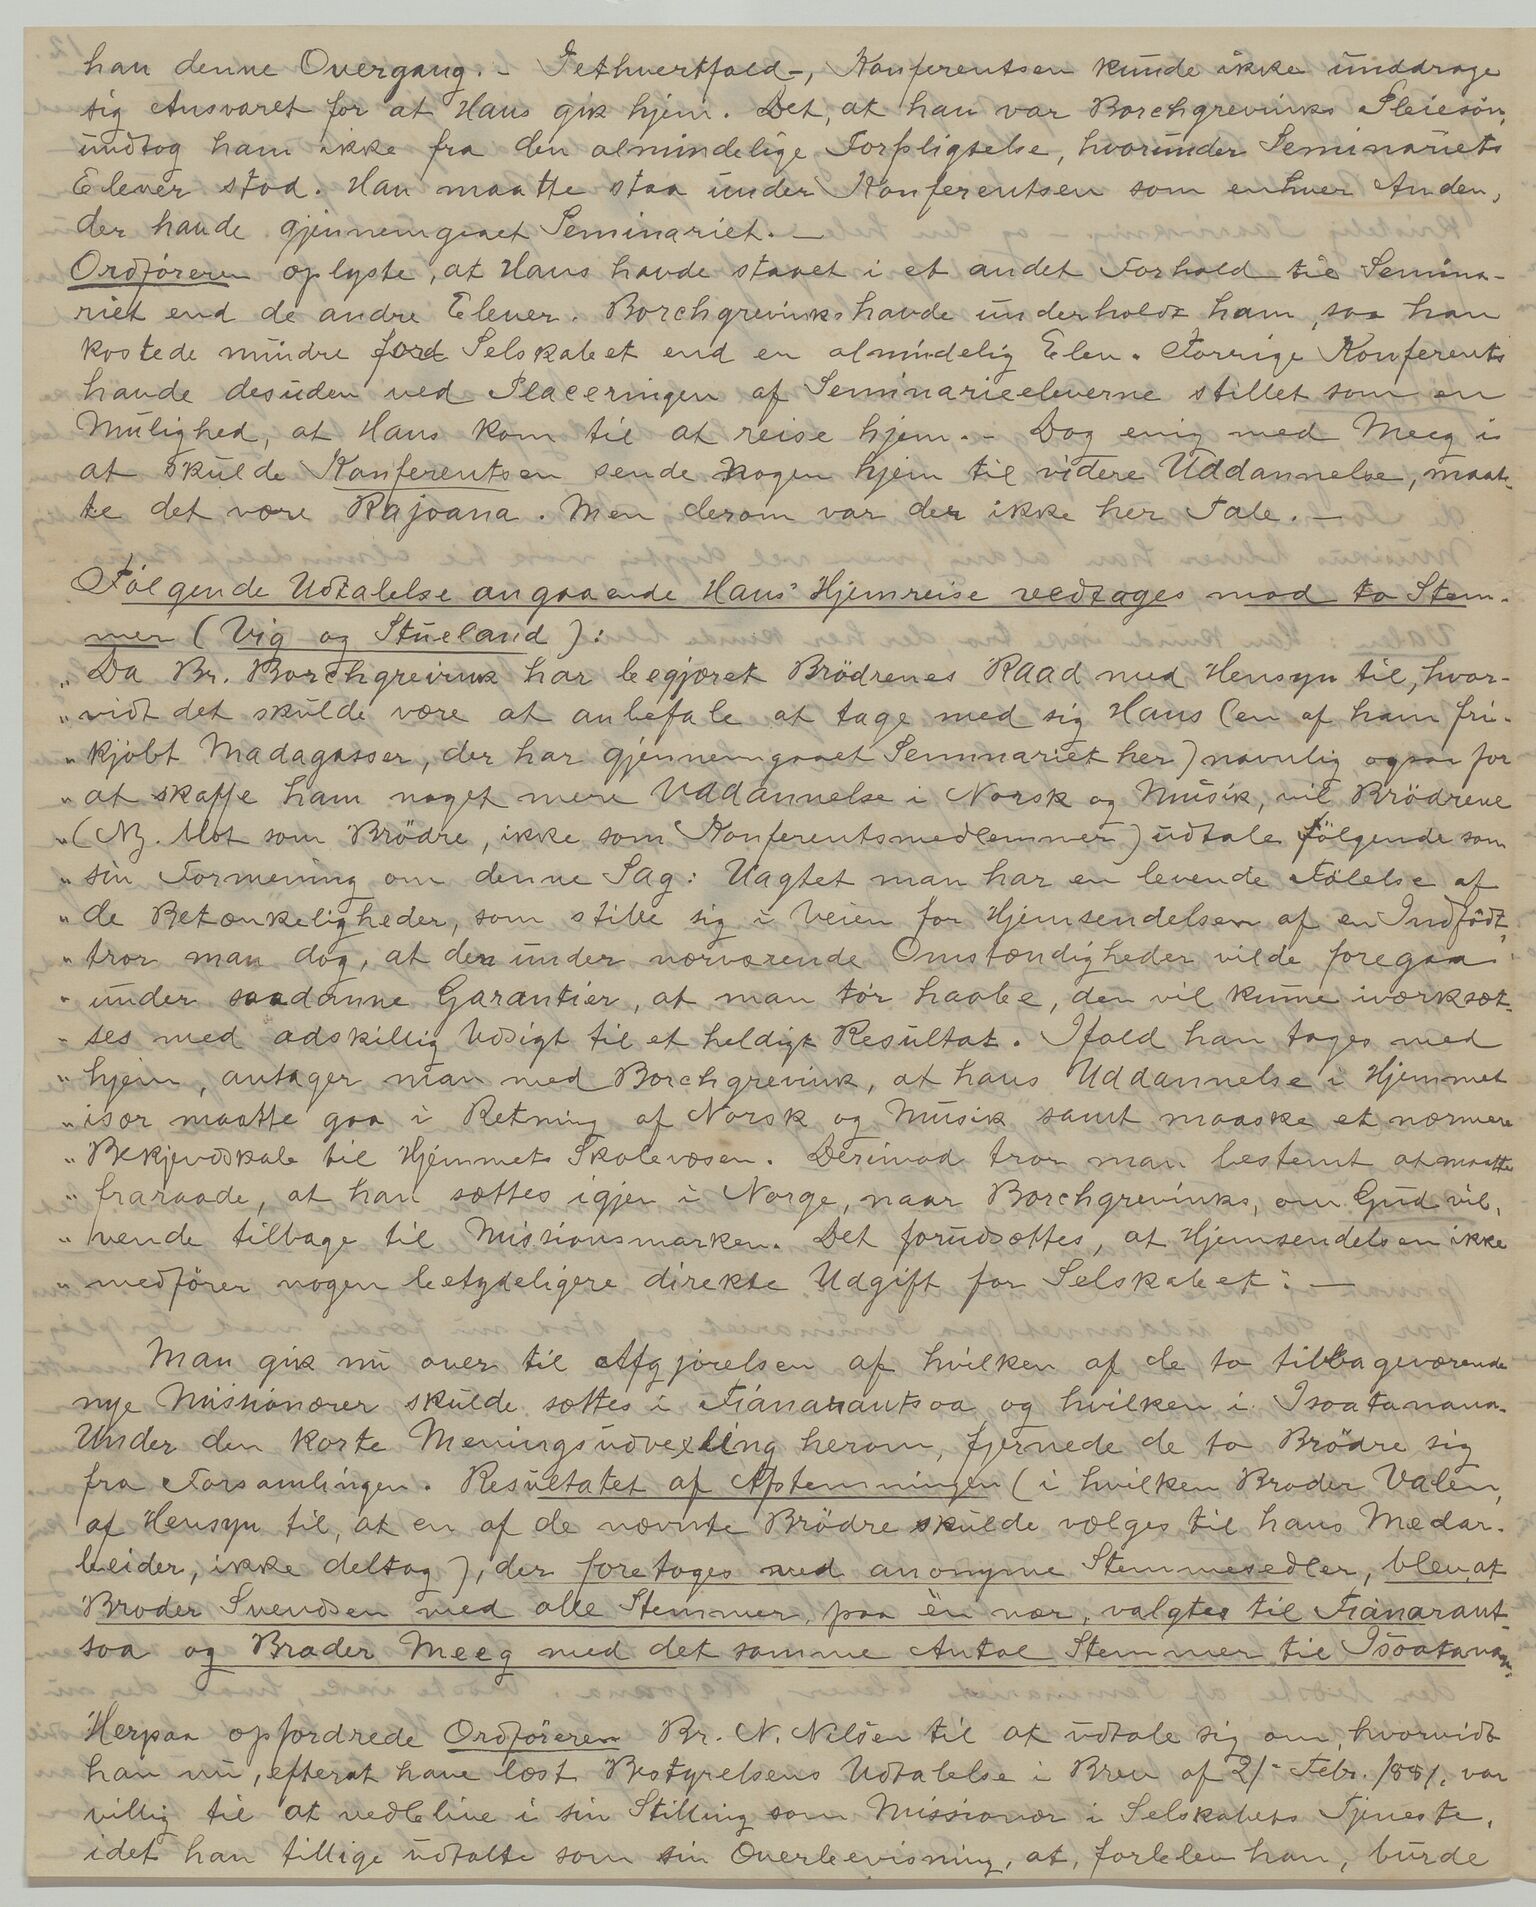 han denne Overgang. - Iethvertfald -, Konferentsen kunde ikke unddrage
sig Ansvaret for at Hans gik hjem. Det, at han var Borchgrevinks Pleiesøn,
undtog ham ikke fra den almindelige Forpligtelse, hvorunder Seminariets
Elever stod. Han maatte staa under Konferentsen som enhver Anden,
der havde gjennemgaaet Seminariet. —
Ordføreren oplyste, at Hans havde staaet i et andet Forhold til Semina-
riet end de andre Elever. Borchgrevinks havde underholdt ham, saa han
kostede mindre ford Selskabet end en almindelig Elev. Forrige Konferents
havde desuden ved Placeringen af Seminarieeleverne stillet som en
Mulighed, at Hans kom til at reise hjem. - Dog enig med Meeg i
at skulde Konferentsen sende nogen hjem til videre Uddannelse, maat-
te det være Rajoana. Men derom var der ikke her Tale. —
Følgende Udtalelse angaaende Hans' Hjemreise vedtages mod to Stem-
mer (Vig og Stueland):
„Da Br. Borchgrevink har begjæret Brödrenes Raad med Hensyn til, hvor-
„vidt det skulde være at anbefale at tage med sig Hans (en af ham fri-
„kjøbt Madagasser, der har gjennemgaaet Seminariet her) navnlig ogsaa for
„at skaffe ham noget mere Uddannelse i Norsk og Musik, vil Brödrene
„(NB. Blot som Brödre, ikke som Konferentsmedlemmer) udtale følgende som
„sin Formening om denne Sag: Uagtet man har en levende Følelse af
„de Betænkeligheder, som stille sig i Veien for Hjemsendelsen af en Indfødt,
„tror man dog, at den under nærværende Omstændigheder vilde foregaa
„under saadanne Garantier, at man tør haabe, den vil kunne iværksæt-
„tes med adskillig Udsigt til et heldigt Resultat. Ifald han tages med
„hjem, antager man med Borchgrevink, at hans Uddannelse i Hjemmet
„især maatte gaa i Retning af Norsk og Musik samt maaske et nærmere
„Bekjendskab til Hjemmets Skolevæsen. Derimod tror man bestemt at maatte
„fraraade, at han sættes igjen i Norge, naar Borchgrevinks, om Gud vil,
„vende tilbage til Missionsmarken. Det forudsættes, at Hjemsendelsen ikke
„medfører nogen betydeligere direkte Udgift for Selskabet". —
Man gik nu over til Afgjørelsen af hvilken af de to tilbageværende
nye Missionærer skulde sættes i Fianarantsoa og hvilken i Isoatanana.
Under den korte Meningsudvexling herom, fjernede de to Brödre sig
fra Forsamlingen. Resultatet af Afstemningen (i hvilken Broder Valen,
af Hensyn til, at en af de nævnte Brödre skulde vælges til hans Medar-
beider, ikke deltog), der foretoges med anonyme Stemmesedler, blev, at
Broder Svendsen med alle Stemmer, paa èn nær, valgtes til Fianarant-
soa og Broder Meeg med det samme Antal Stemmer til Isoatanana.
Herpaa opfordrede Ordføreren Br. N. Nilsen til at udtale sig om, hvorvidt
han nu, efterat have læst Bestyrelsens Udtalelse i Brev af 21- Febr. 1881, var
villig til at vedblive i sin Stilling som Missionær i Selskabets Tjeneste,
idet han tillige udtalte som sin Overbevisning, at, forblev han, burde